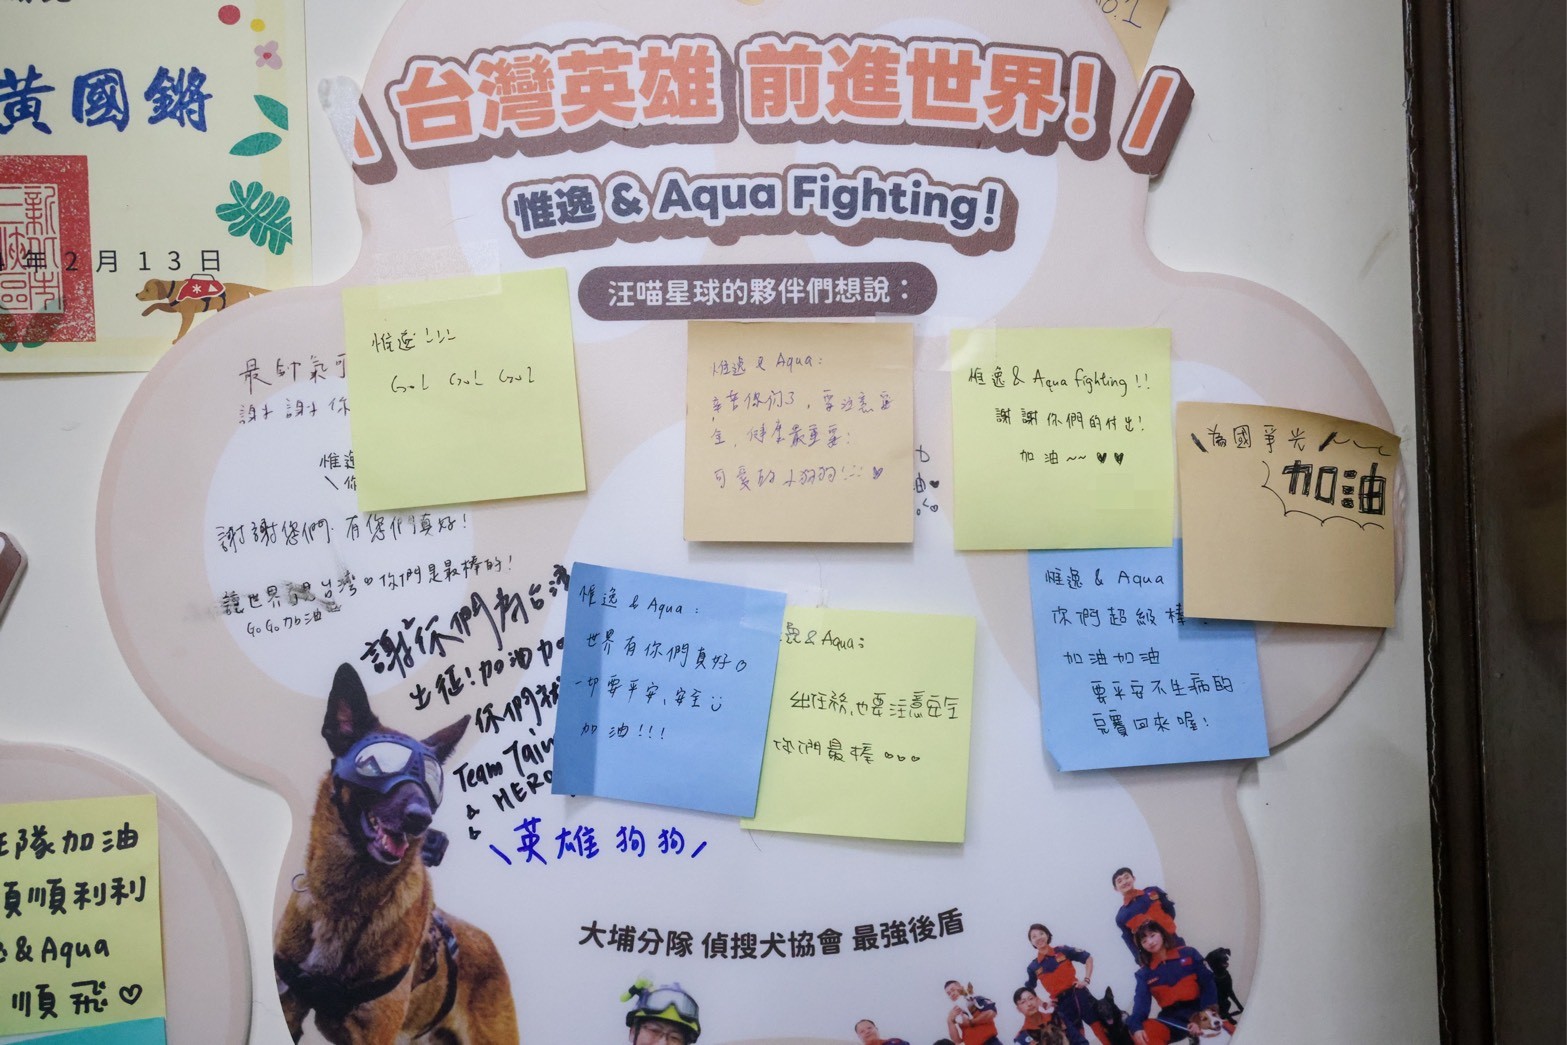 No.1
黃國鏘
年2月13日
\ 台灣英雄 前進世界! /
惟逸 & Aqua Fighting!
汪喵星球的夥伴們想說：
最帥氣可
謝謝你
惟逸
\你
謝謝您們.有您们真好!
讓世界 台灣♥你們是最棒的!
GoGo加油
惟逸!!!
Go! Go! Go!
惟逸 & Aqua:
辛苦你们了，要注意安
全，健康最重要!
可愛的小狗狗!!! ♥
惟逸 & Aqua fighting!!
謝謝你們的付出!
加油~~ ♥♥
\為國爭光/
加油
謝謝你們為台灣
出征!加油加
你們就
Team Taiw
& HERO
\英雄狗狗/
惟逸 & Aqua:
世界有你們真好
一切要平安、安全
加油!!!
逸&Aqua:
出任務,也要注意安全
你們最棒
惟逸 & Aqua
你們超級棒!
加油加油
要平安不生病的
完賽回來喔!
大埔分隊 偵搜犬協會 最強後盾
隊加油
順順利利
&Aqua
順飛♡